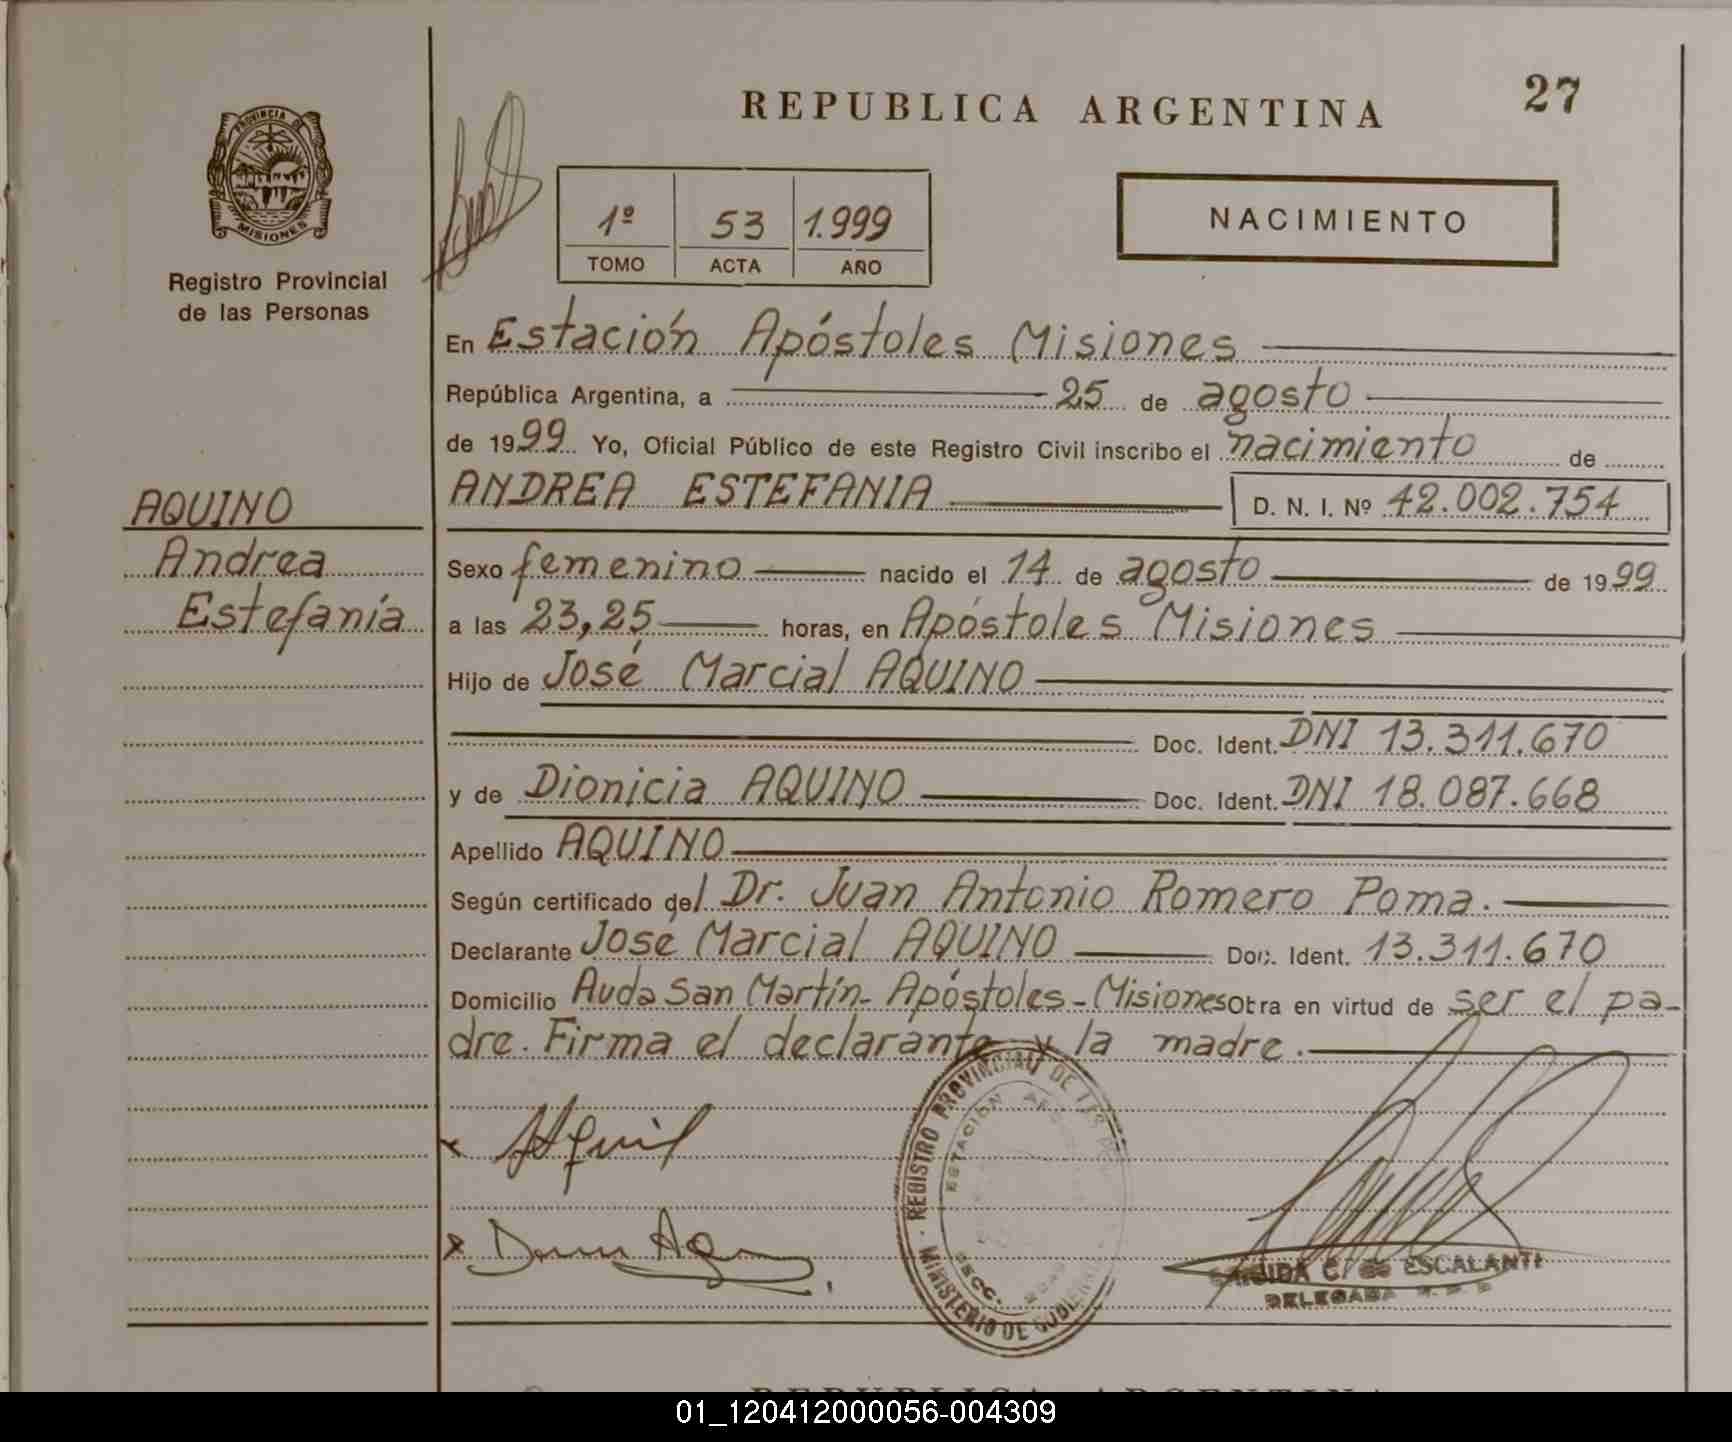 REPUBLICA ARGENTINA
27
PROVINCIA DE
MISIONES
Registro Provincial
de las Personas
1º 53 1.999
TOMO ACTA AÑO
NACIMIENTO
En Estación Apóstoles Misiones
República Argentina, a 25 de agosto
de 1999 Yo, Oficial Público de este Registro Civil inscribo el nacimiento de
ANDREA ESTEFANIA D. N. I. Nº 42.002.754
AQUINO
Andrea
Estefanía
Sexo femenino nacido el 14 de agosto de 1999
a las 23,25 horas, en Apóstoles Misiones
Hijo de José Marcial AQUINO
Doc. Ident. DNI 13.311.670
y de Dionicia AQUINO Doc. Ident. DNI 18.087.668
Apellido AQUINO
Según certificado del Dr. Juan Antonio Romero Poma.
Declarante Jose Marcial AQUINO Doc. Ident. 13.311.670
Domicilio Avda San Martín - Apóstoles - Misiones Obra en virtud de ser el pa-
dre. Firma el declarante y la madre.
REGISTRO PROVINCIAL DE LAS
ESTACION
SECC.
MINISTERIO DE GOBIERNO
ESCALANTE
DELEGADA
REPUBLICA ARGENTINA
01_120412000056-004309